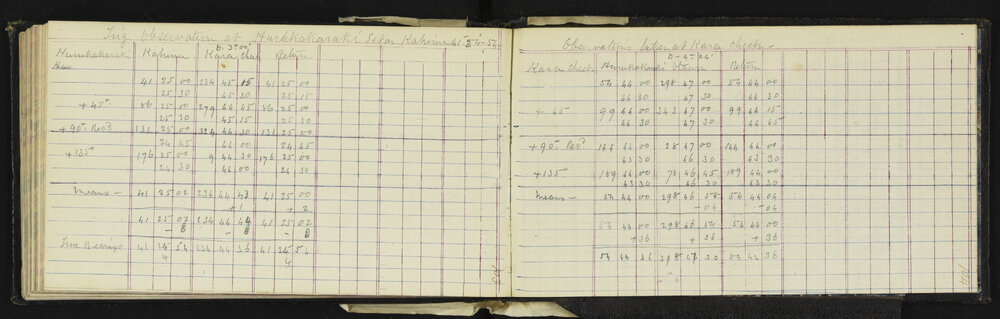 Trig Observation at Hurkkakaraki Setor Kahinu 41-24-54
D. 3° 04'
Kahinu Kara Check Return
41 25 00 234 45 15 41 25 00
25 30 45 30 25 15
+45° 86 25 00 279 44 45 86 25 00
25 30 45 15 25 30
+90° Rev'd 131 25 00 324 44 30 131 25 00
24 45 44 00 24 45
+135° 176 25 00 9 44 30 176 25 00
24 30 44 00 24 30
Means - 41 25 02 234 44 43 41 25 00
+1 +2
41 25 02 234 44 44 41 25 02
-8 -8 -8
True Bearings 41 24 54 234 44 36 41 24 54
4 4
Observations later at Kara Check -
D - 4° 24'
Kara Check Return
54 44 00 298 47 00 54 44 00
44 30 47 30 44 30
+ 45 99 44 00 343 47 00 99 44 15
44 30 47 30 44 45
+90° Rev'd 144 44 00 28 47 00 144 44 00
43 30 46 30 43 30
+135° 189 44 00 73 46 45 189 44 00
43 30 46 30 43 30
Means - 54 44 00 298 46 58 54 44 04
- 04 - 04
54 44 00 298 46 54 54 44 00
+36 + 36 + 36
54 44 36 298 47 30 54 44 36